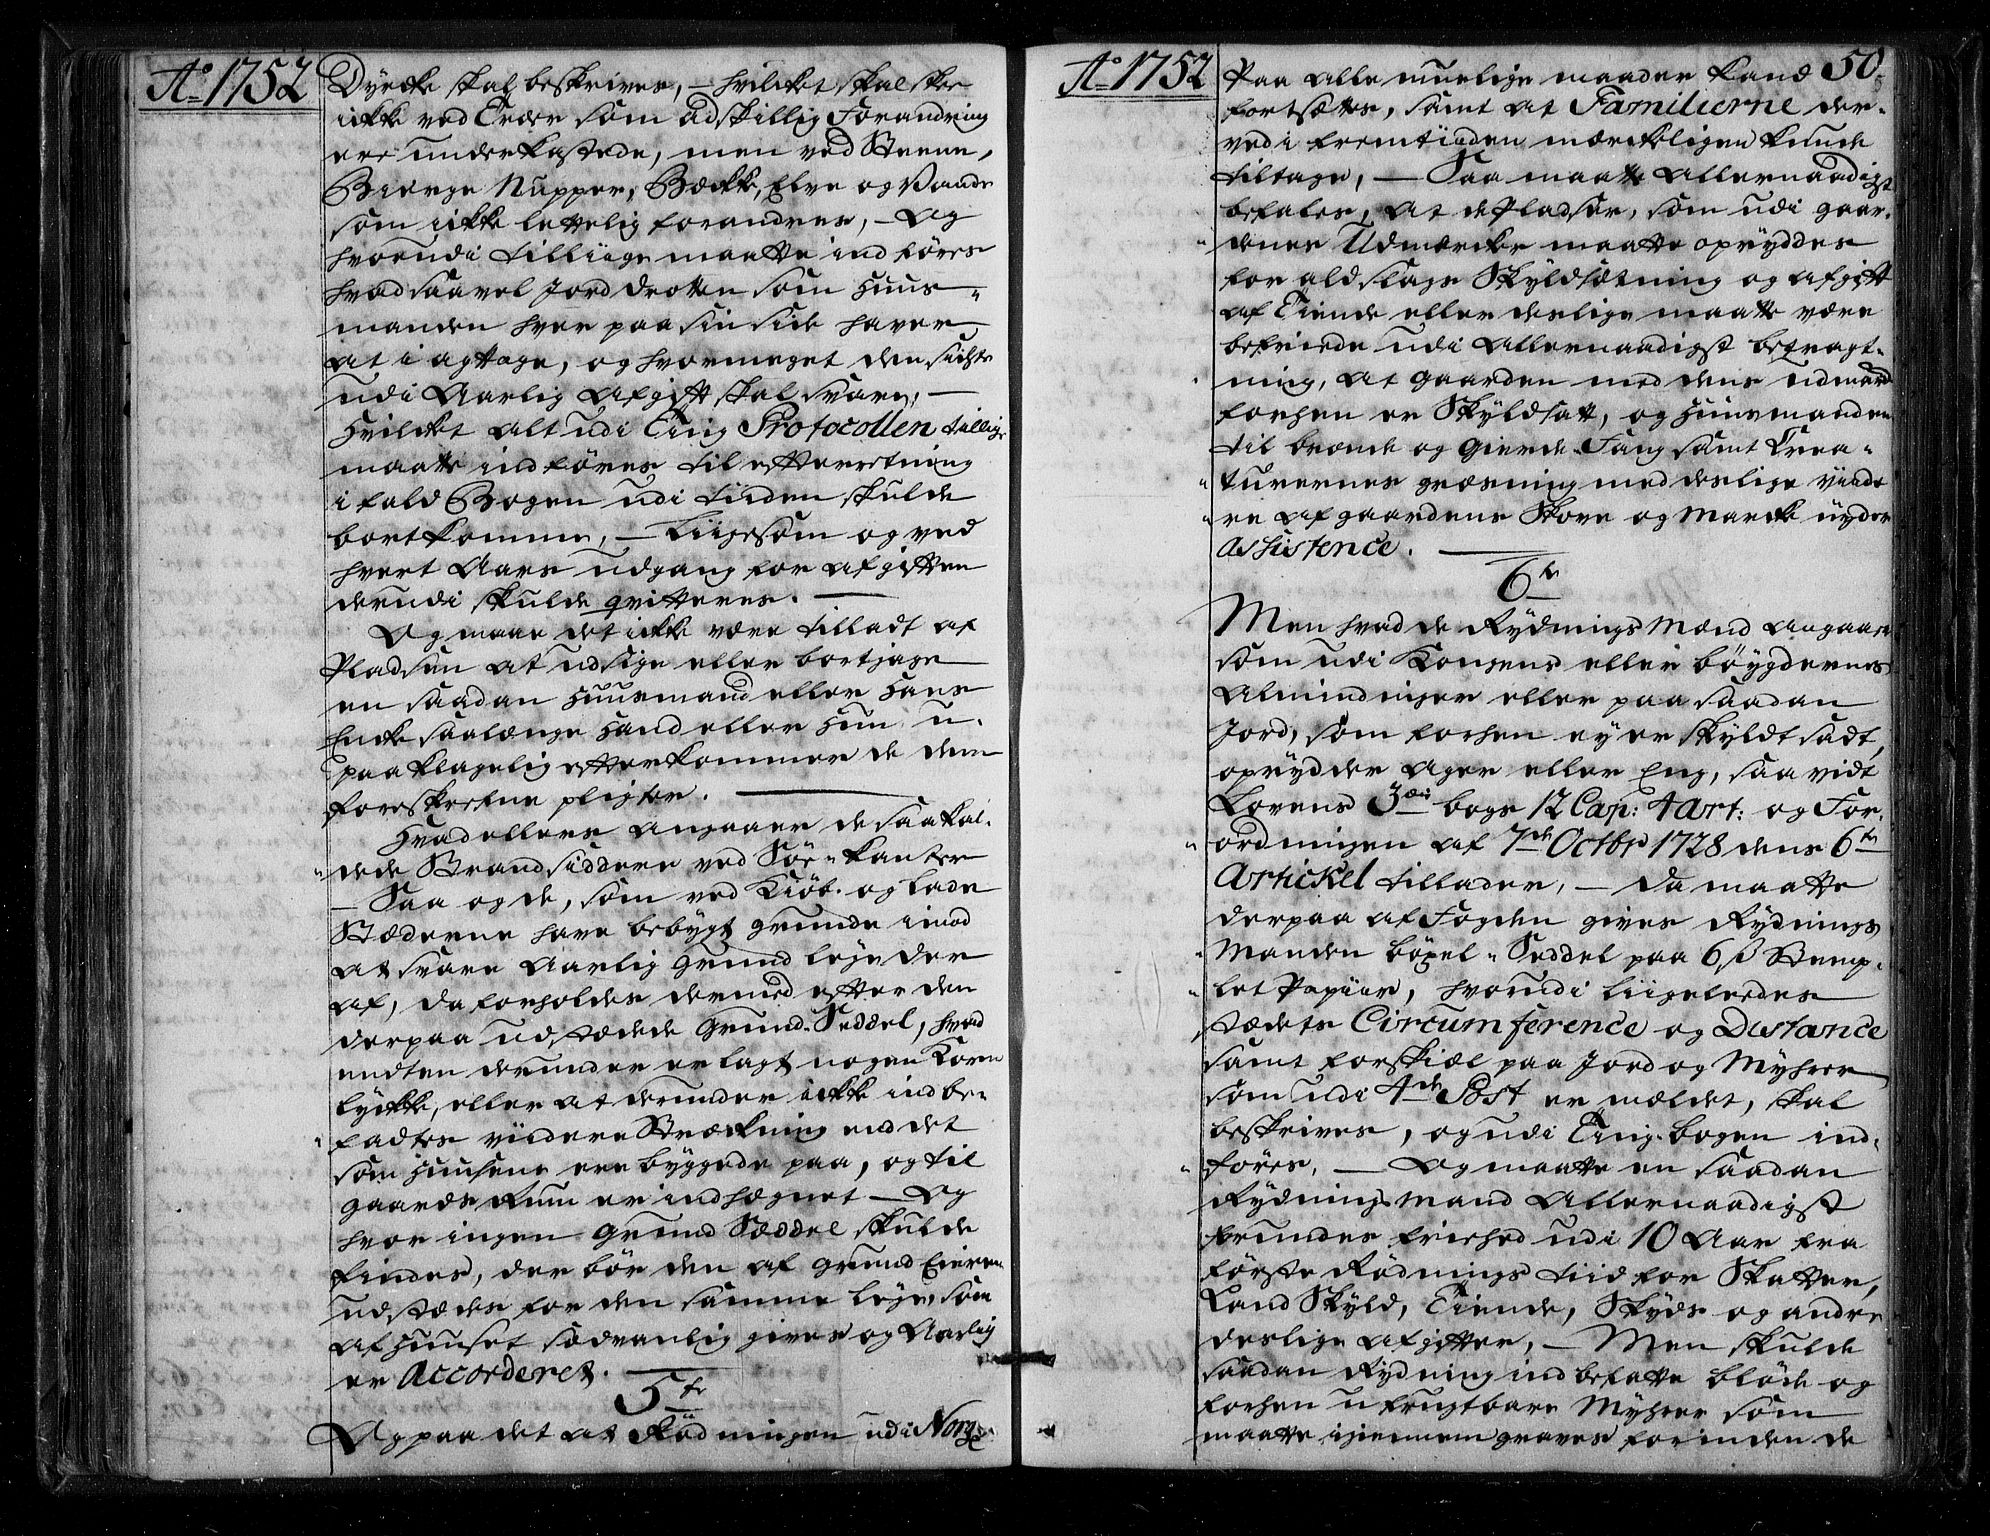 Ao 1752
Dyrcke skal beskrives, – hvilcket skal skee
icke ved Træer som adskillig Forandring
ere underkastede, men ved Steene,
Bierge Nupper, Bække, Elve og Vande
som icke lettelig forandres, – Og
hvorudi tilliige maatte indføres
hvad saavel Jorddrotten som Huus-
manden hver paa sin side haver
at iagttage, og hvormeget den sidste
udi Aarlig Afgift skal svare, –
Hvilcket alt udi Ting Protocollen tillige
maatte indføres til efterretning
ifald Bogen udi tiiden skulde
bortkomme, – Liigesom og ved
hvert Aars udgang for afgiften
derudi skulde qvitteres. –
Og maae det icke være tilladt af
Pladsen at udsige eller bortjage
en saadan Huusmand eller Hans
Encke saalænge Hand eller Hun u-
paaklagelig efterkommer de dem
foreskrefne pligter. –
Hvad ellers angaaer de saa kal-
dede Strandsiddere ved Søe-kanten
– Saa og de, som ved Kiøb- og Lade
Stæderne have bebygt grunde imod
at svare Aarlig grundleje der
af, da forholdes dermed efter den
derpaa udstædede Grund-Seddel, hvad
endten derunder er lagt nogen Korn
lycke, eller at derunder icke indbe-
fadtes viidere Strækning end det
som Huusene ere byggede paa, og til
gaards Rum er indhægnet – Og
hvor ingen Grund Seddel skulde
findes, der bør den af grund Eieren
udstædes for den samme leje, som
af Huuset sædvanlig gives og Aarlig
er Accorderet. –
5te
Og paa det at Rødningen udi Norge
Ao 1752
50
Paa alle muelige maader kand
fortsættes, samt at Familierne der-
ved i fremtiiden mærckeligen kunde
tiltage, – Saa maatte Allernaadigst
befales, at de Pladser, som udi gaar-
denes Udmarcker maatte opryddes
for aldslags Skyldsætning og afgift
af Tiende eller deslige maatte være
befriede udi Allernaadigst betragt-
ning, at gaarden med dens udmarck
forhen er Skyldsatt, og Huusmanden
til brænde og Gierde-Fang samt Crea-
turernes græsning med deslige viide
re af gaardens Skove og Marck nyder
assistence. –
6te
Men hvad de Rydnings Mænd angaaer
som udi Kongens eller böygdernes
Almindinger eller paa saadan
Jord, som forhen ey er skyldtsadt,
oprydder Ager eller Eng, saavidt
Lovens 3die bogs 12 Cap: 4 Art: og For-
ordningen af 7de Octbr 1728 dens 6te
Artickel tillader, – Da maatte
derpaa af Fogden gives Rydnings
Manden böxel-Seddel paa 6 ß Stemp-
let Papiir, hvorudi liigeledes
stædets Circumference og Distance
samt forskiæl paa Jord og Myhrer
som udi 4de Post er meldet, skal
beskrives, og udi Ting-bogen ind-
føres, – Og maatte en saadan
Rydnings mand Allernaadigst
forundes friehed udi 10 Aar fra
første Rødnings tiid for Skatter,
Land Skyld, Tiende, Skyds og andre
deslige afgifter, – Men skulde
saadan Rydning indbefatte bløde og
forhen ufrugtbare Myhrer som
maatte igiennemgraves forinden de